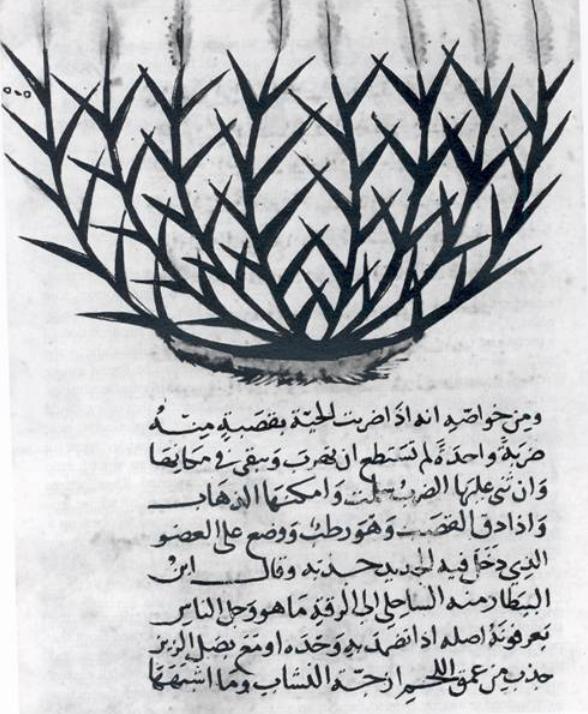 ومن خواصه انه اذا ضربت الحيّة بقصبةٍ منه
ضربةً واحدةً لم تستطع ان تهرب وتبقى في مكانها
وان ثنى عليها الضرب سلمت وامكنها الذهاب
واذا دق القصب وهو رطب ووضع على العضو
الذي دخل فيه الحديد جذبه وقال ابن
البيطار منه الساحلي الى الرقة ما هو وجل الناس
يعرفونه اصله اذا تضمد به وحده او مع بصل الزيز
جذب من عمق اللحم ازجة النشاب وما اشبهها